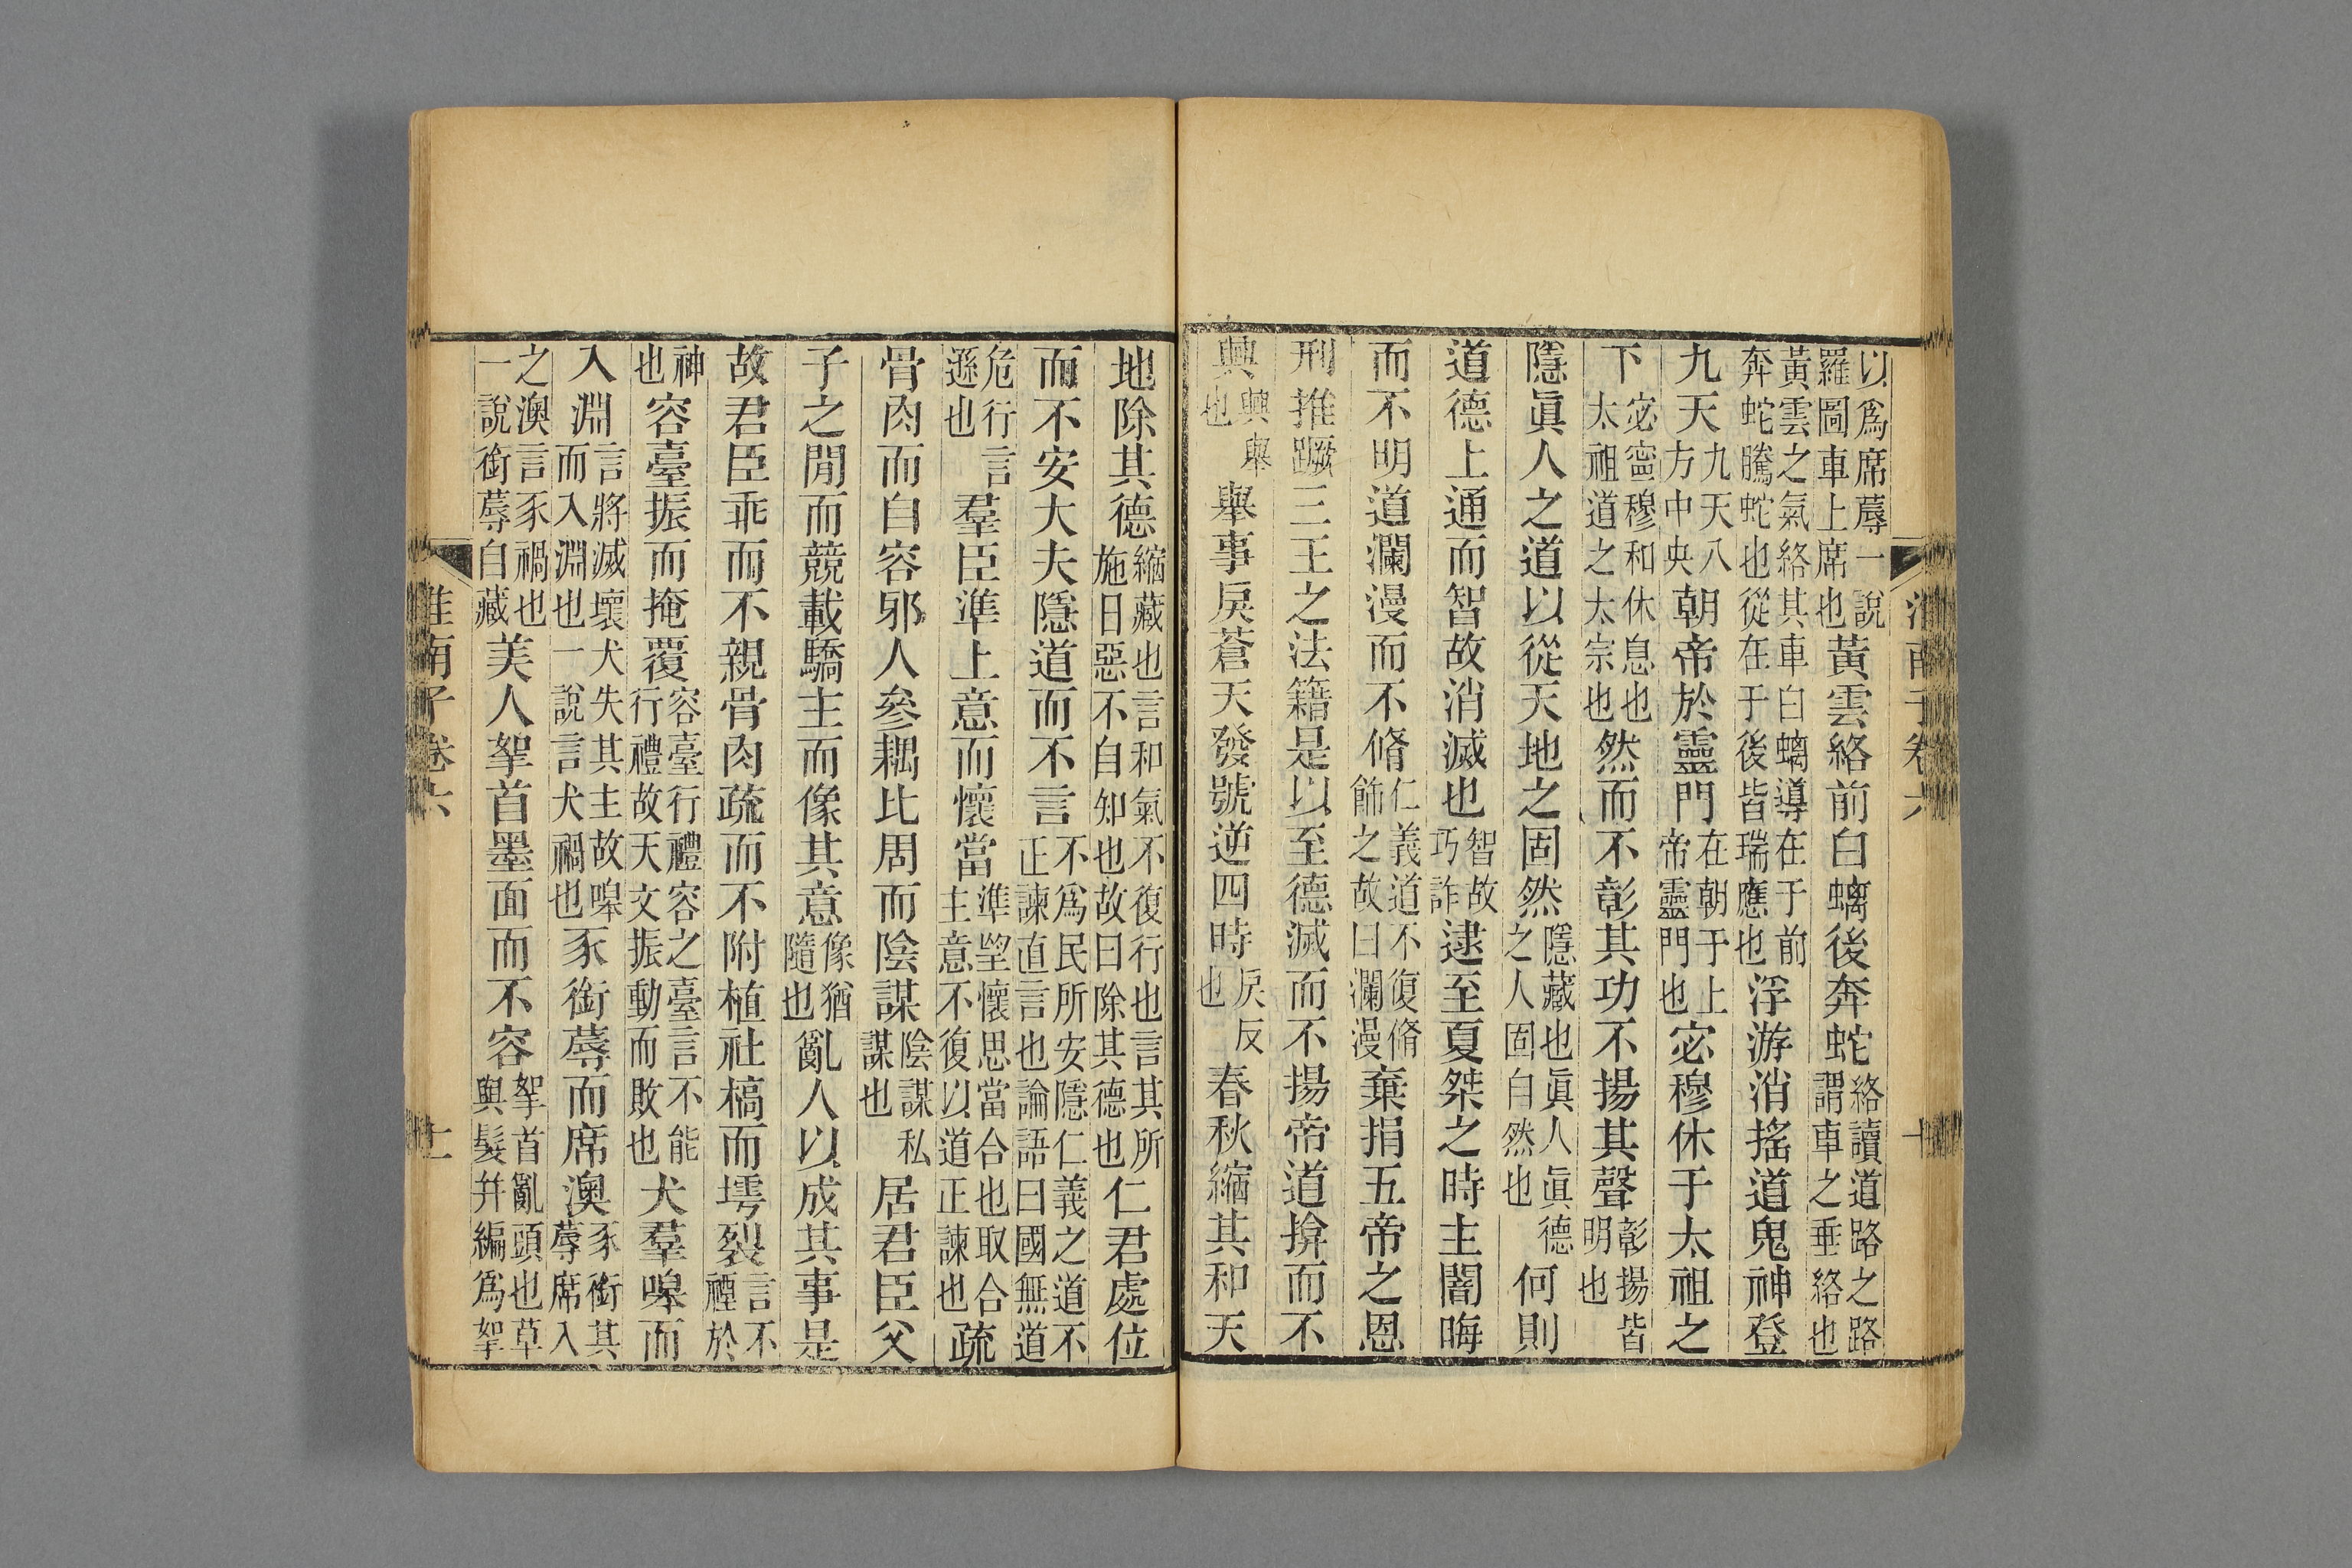 淮南子卷六
以爲席蓐一說羅圖車上席也黃雲絡前白螭後奔蛇絡讀道路之路謂車之垂絡也
黃雲之氣絡其車白螭導在于前奔蛇騰蛇也從在于後皆瑞應也浮游消搖道鬼神登
九天九天八方中央朝帝於靈門在朝于上帝靈門也宓穆休于太祖之
下宓寍穆和休息也太祖道之太宗也然而不彰其功不揚其聲彰揚皆明也
隱眞人之道以從天地之固然隱藏也眞人眞德之人固自然也何則
道德上通而智故消滅也智故巧詐逮至夏桀之時主闇晦
而不明道瀾漫而不脩仁義道不復脩飾之故曰瀾漫棄捐五帝之恩
刑推蹶三王之法籍是以至德滅而不揚帝道揜而不
興興舉也舉事戾蒼天發號逆四時戾反也春秋縮其和天
地除其德縮藏也言和氣不復行也言其所施日惡不自知也故曰除其德也仁君處位
而不安大夫隱道而不言不爲民所安隱仁義之道不正諫直言也論語曰國無道
危行言遜也羣臣準上意而懷當準望懷思當合也取合主意不復以道正諫也疏
骨肉而自容邪人參耦比周而陰謀陰謀私謀也居君臣父
子之閒而競載驕主而像其意像猶隨也亂人以成其事是
故君臣乖而不親骨肉疏而不附植社槁而㙤裂言不禋於
神也容臺振而掩覆容臺行禮容之臺言不能行禮故天文振動而敗也犬羣嘷而
入淵言將滅壞犬失其主故嘷而入淵也一說言犬禍也豕銜蓐而席澳豕銜其蓐席入
之澳言豕禍也一說銜蓐自藏美人挐首墨面而不容挐首亂頭也草與髮幷編爲挐
淮南子卷六
十一